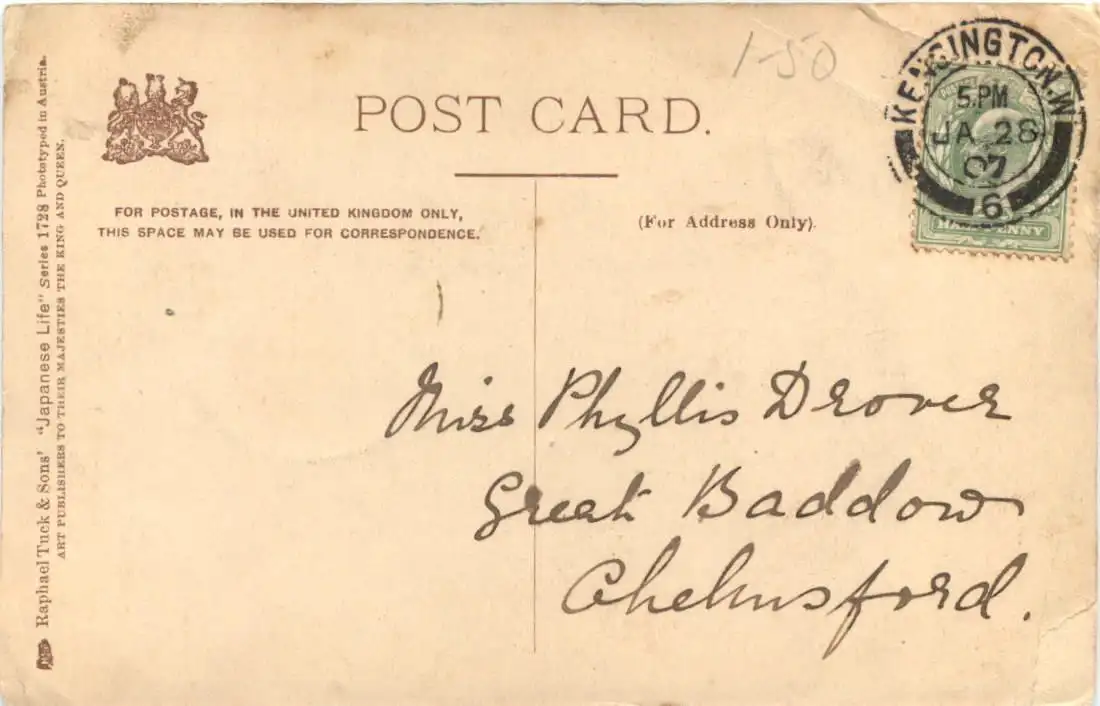 1-50
POST CARD.
KENSINGTON.W.
5.PM
JA 28
07
6
HALFPENNY
FOR POSTAGE, IN THE UNITED KINGDOM ONLY,
THIS SPACE MAY BE USED FOR CORRESPONDENCE.
(For Address Only).
Miss Phyllis Drover
Great Baddow
Chelmsford.
Raphael Tuck & Sons' "Japanese Life" Series 1728 Phototyped in Austria.
ART PUBLISHERS TO THEIR MAJESTIES THE KING AND QUEEN.